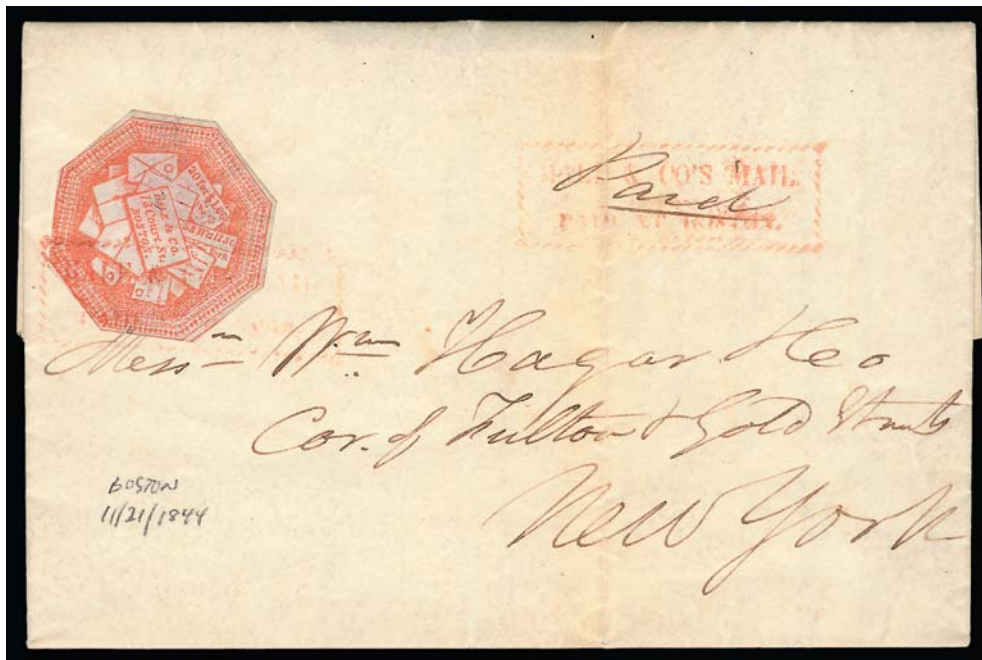 20 for $1.00
Hale & Co.
13 Court St.
BOSTON.
CO'S MAIL.
Paid
PAID AT BOSTON.
Messrs Wm Hagar & Co
Cor. of Fulton & Gold Streets
New York
BOSTON
11/21/1844